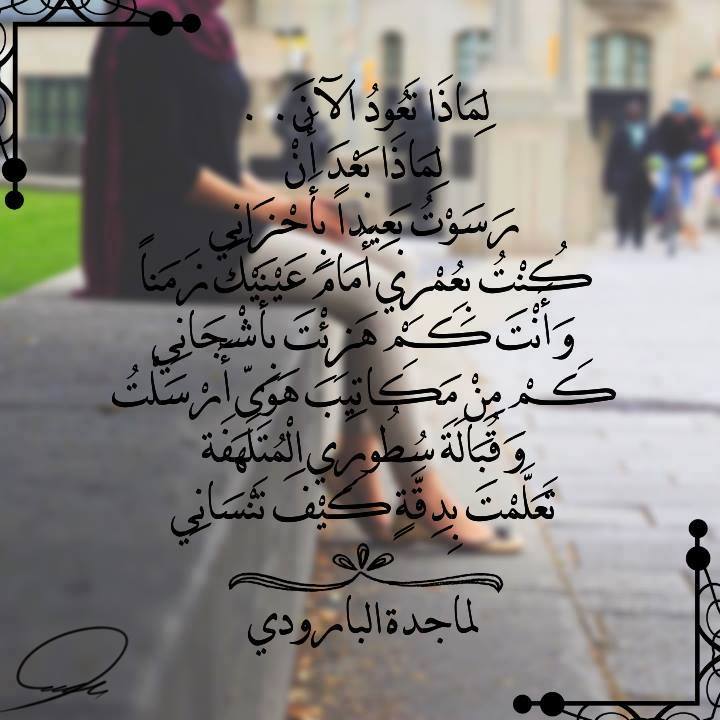 لِمَاذَا تَعُودُ الآنَ. .
لِمَاذَا بَعْدَ أَنْ
رَسَوْتُ بَعِيداً بِأَحْزَانِي
كُنْتُ بِعُمْرِي أَمَامَ عَيْنَيْكَ زَمَناً
وَأَنْتَ كَمْ هَزِئْتَ بِأَشْجَانِي
كَمْ مِنْ مَكَاتِيبَ هَوَىً أَرْسَلْتُ
وَقُبَالَةَ سُطُورِي الْمُتَلَهِّفَة
تَعَلَّمْتَ بِدِقَّةٍ كَيْفَ تَنْسَانِي
لماجدة البارودي